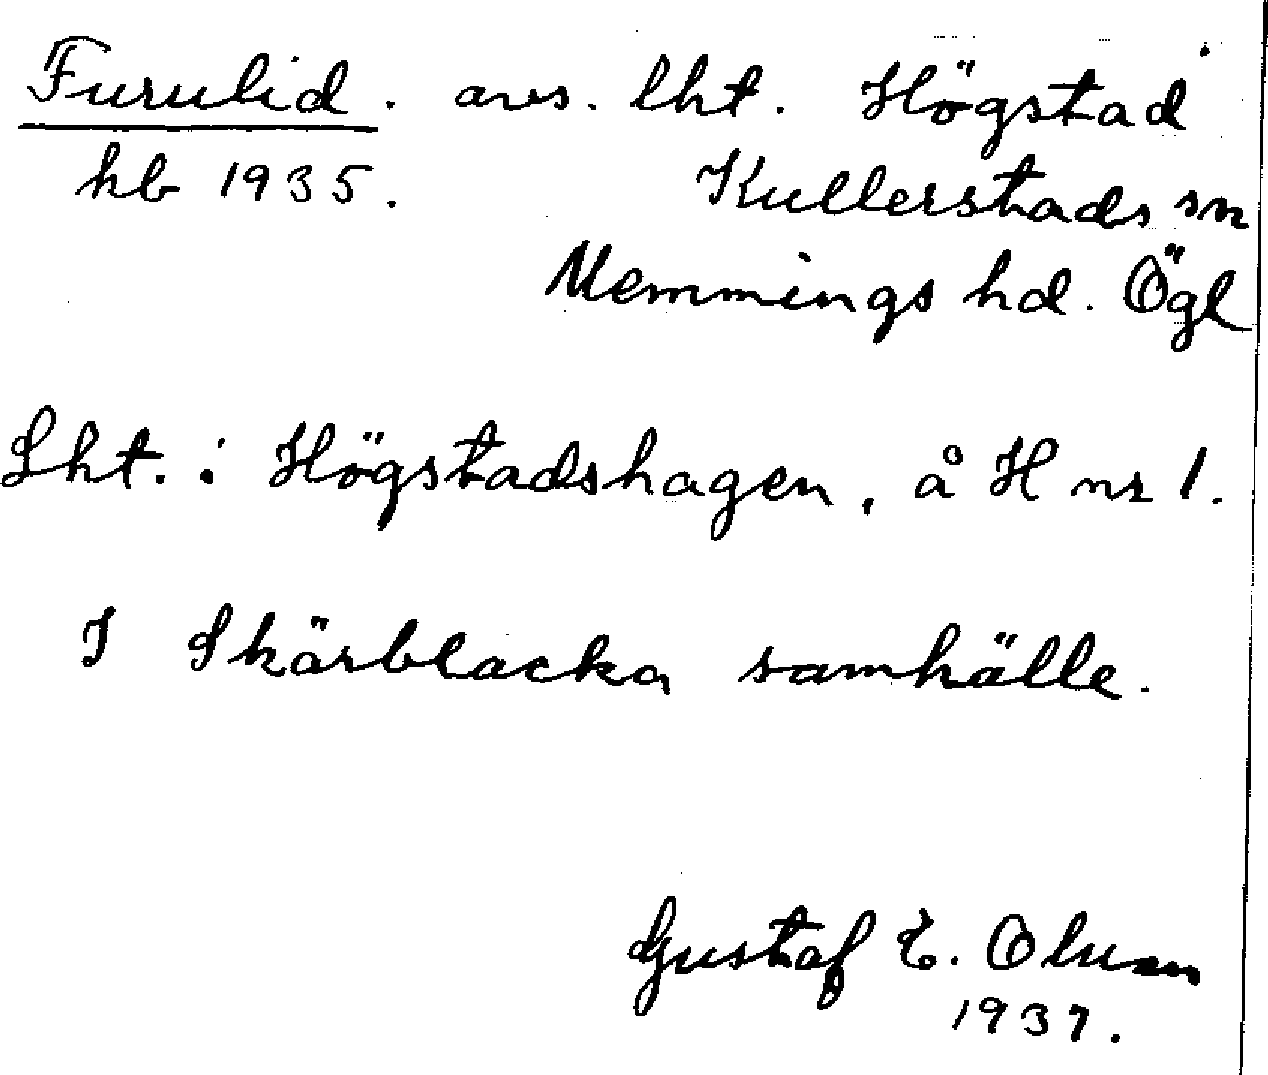 Furulid. avs. lht. Högstad
hb 1935. Kullerstads sn
Memmings hd. Ögl
Lht. i Högstadshagen, å H nr 1.
I Skärblacka samhälle.
Gustaf E. Olsson
1937.